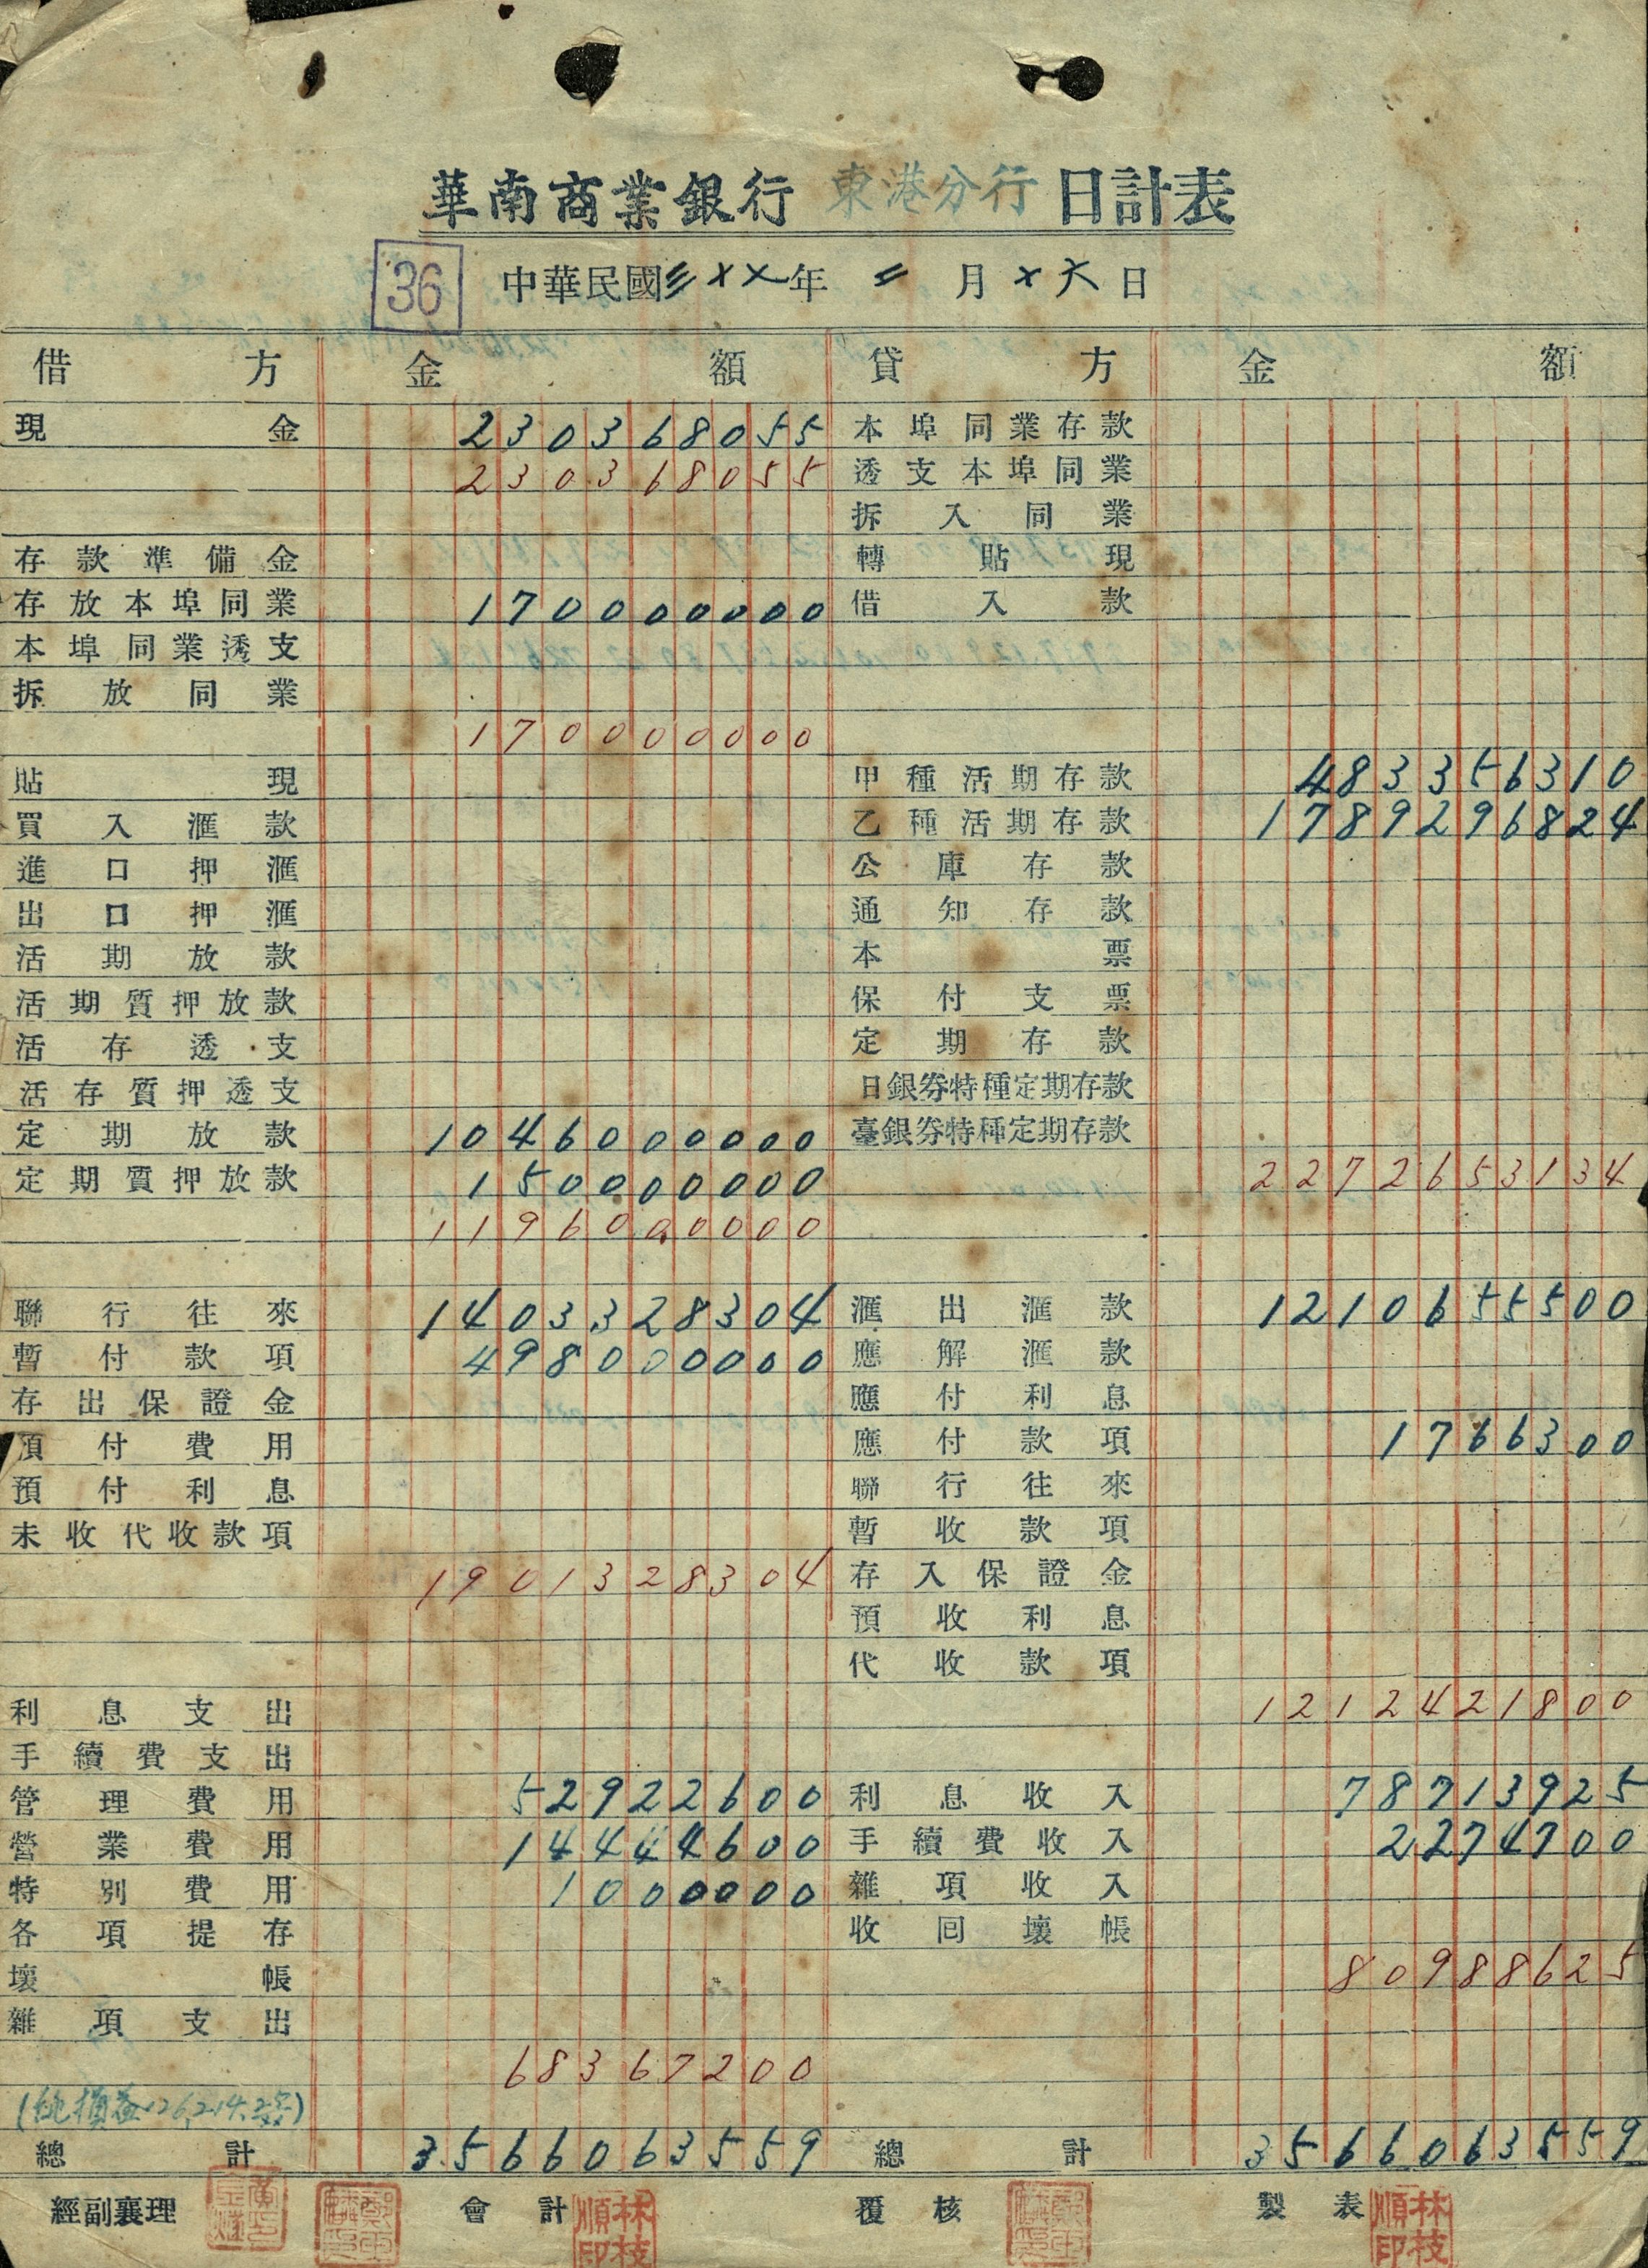 華南商業銀行 東港分行 日計表
36
中華民國三××年 二月×六日
借方 金額 貸方 金額
現金 230368055 本埠同業存款
230368055 透支本埠同業
拆入同業
存款準備金 轉貼現
存放本埠同業 170000000 借入款
本埠同業透支
拆放同業
170000000
貼現 甲種活期存款 483356310
買入滙款 乙種活期存款 1789296824
進口押滙 公庫存款
出口押滙 通知存款
活期放款 本票
活期質押放款 保付支票
活存透支 定期存款
活存質押透支 日銀券特種定期存款
定期放款 1046000000 臺銀券特種定期存款
定期質押放款 150000000 2272653134
1196000000
聯行往來 1403328304 滙出滙款 1210655500
暫付款項 498000000 應解滙款
存出保證金 應付利息
預付費用 應付款項 1766300
預付利息 聯行往來
未收代收款項 暫收款項
1901328304 存入保證金
預收利息
代收款項
利息支出 1212421800
手續費支出
管理費用 52922600 利息收入 78713925
營業費用 14444600 手續費收入 2274700
特別費用 1000000 雜項收入
各項提存 收回壞帳
壞帳 80988625
雜項支出
68367200
(純損益126,214.25)
總計 3566063559 總計 3566063559
經副襄理 會計 林枝順印 覆核 製表 林枝順印